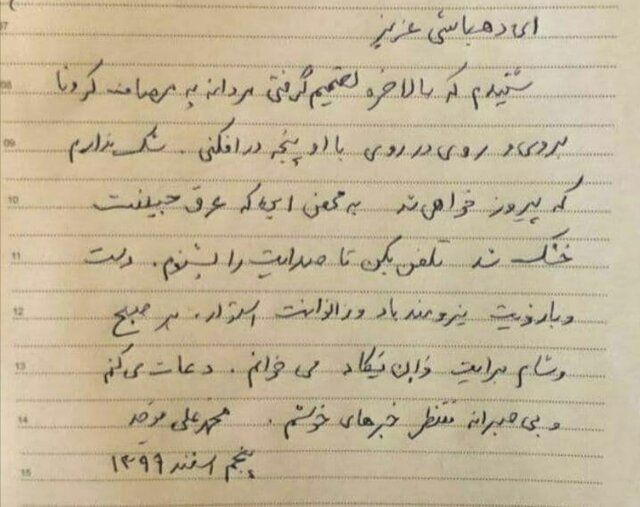 ای دهباشی عزیز
شنیدم که بالاخره تصمیم گرفتی مردانه به مصاف کرونا
بروی و روی در روی با او پنجه درافکنی. شک ندارم
که پیروز خواهی شد به محض این که عرق جبینت
خشک شد تلفن بکن تا صدایت را بشنوم. دلت
و بازویت نیرومند باد و زانوانت استوار. هر صبح
و شام برایت وَاِن یَکاد می خوانم. دعات می کنم
و بی صبرانه منتظر خبرهای خوشم. محمدعلی موحد
پنجم اسفند ۱۳۹۹
07
08
09
10
11
12
13
14
15